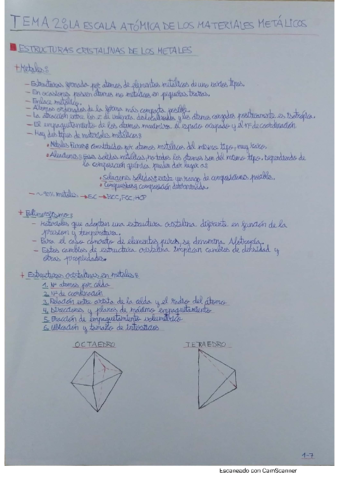 TEMA 2.3: LA ESCALA ATÓMICA DE LOS MATERIALES METÁLICOS
ESTRUCTURAS CRISTALINAS DE LOS METALES
+ Metales:
- Estructuras formadas por átomos de elementos metálicos de uno o varios tipos.
- En ocasiones poseen átomos no metálicos en pequeñas trazas.
- Enlace metálico.
- Átomos ordenados de la forma más compacta posible.
- El empaquetamiento de los átomos maximiza el espacio ocupado y el nº de coordinación
- Hay dos tipos de materiales metálicos:
• Metales Puros: constituidos por átomos metálicos del mismo tipo, muy raros.
• Aleaciones: no todos los átomos son del mismo tipo. Dependiendo de
la composición química puede dar lugar a:
• Soluciones sólidas: existe un rango de composiciones posible
• Compuestos: composición determinada.
+ Polimorfismo:
- Materiales que adoptan una estructura cristalina diferente en función de la
presión y temperatura.
- Para el caso concreto de elementos puros, se denomina Alotropía.
- Estos cambios de estructura cristalina implican cambios de densidad y
otras propiedades.
+ Estructuras cristalinas en metales:
1. Nº átomos por celda
2. Nº de coordinación
3. Relación entre arista de la celda y el radio del átomo.
4. Direcciones y planos de máximo empaquetamiento
5. Fracción de empaquetamiento volumétrico
6. Ubicación y tamaño de intersticios
OCTAEDRO TETRAEDRO
Escaneado con CamScanner